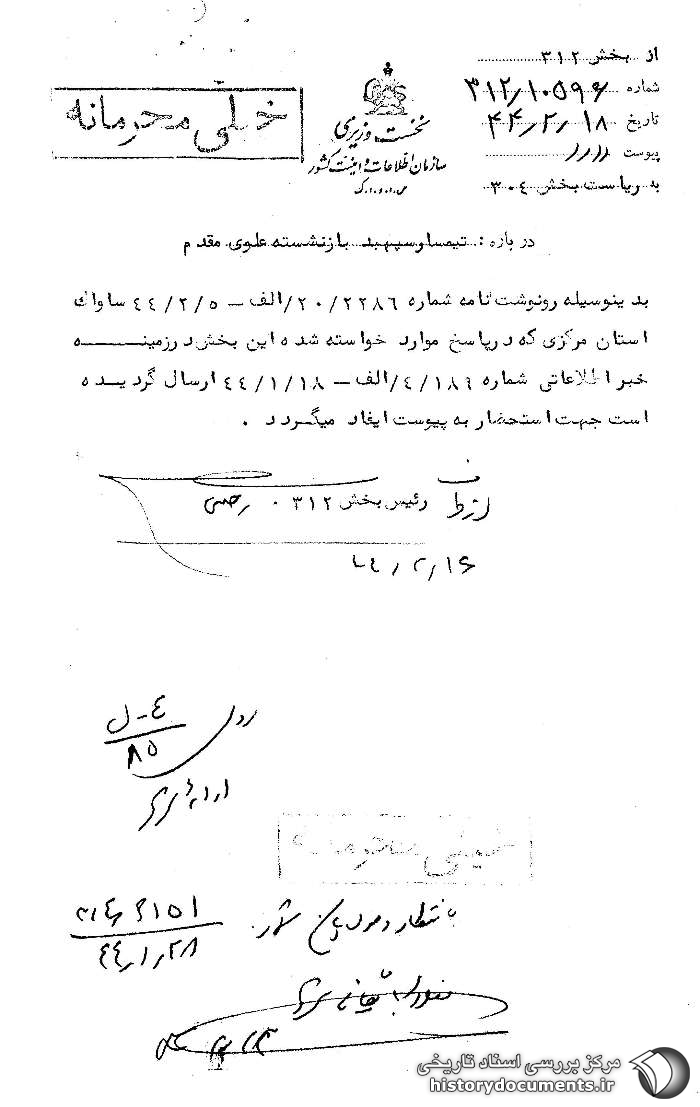 از بخش ۳۱۲
شماره ۳۱۲/۱۰۵۹۶
تاریخ ۴۴/۲/۱۸
پیوست
به ریاست بخش ۳۰۴
نخست وزیری
سازمان اطلاعات و امنیت کشور
س.ا.و.ا.ک
خیلی محرمانه
درباره : تیمسار سپهبد بازنشسته علوی مقدم
بدینوسیله رونوشت نامه شماره ۲۰/۲۲۸۶/الف – ۴۴/۲/۵ ساواک
استان مرکزی که درپاسخ موارد خواسته شده این بخش درزمینه
خبر اطلاعاتی شماره ۴/۱۸۶/الف – ۴۴/۱/۱۸ ارسال گردیده
است جهت استحضار به پیوست ایفاد میگردد .
از طرف رئیس بخش ۳۱۲ .
۴۴/۲/۱۶
۴-ل
۸۵
خیلی محرمانه
با نتظار وصول
۴۴/۱/۲۸
مرکز بررسی اسناد تاریخی
historydocuments.ir